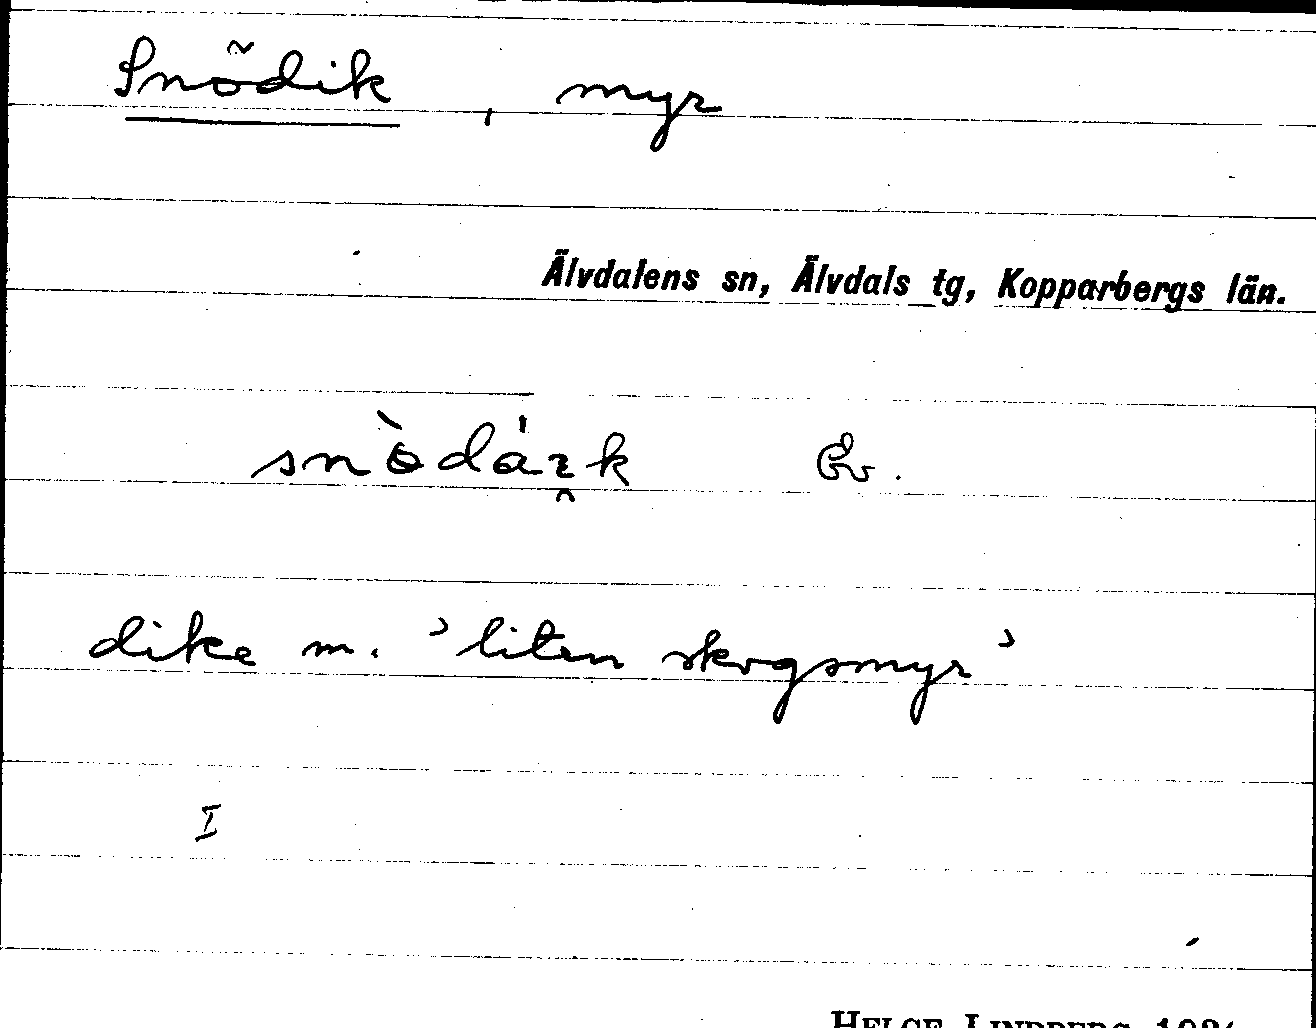 Snödik, myr
Älvdalens sn, Älvdals tg, Kopparbergs län.
dike m. 'liten skogsmyr'
I
HELGE LINDBERG